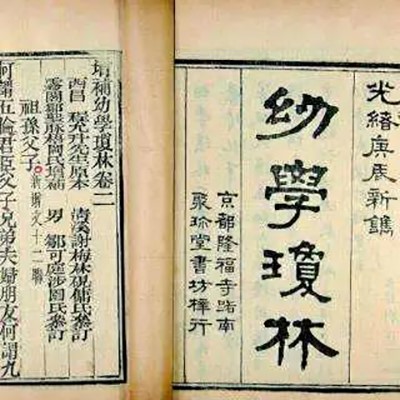 光緒庚辰新鐫
幼學瓊林
京都隆福寺路南
聚珍堂書坊梓行
增補幼學瓊林卷二
西昌 程允升先生原本
霧閣鄒聖脈梧岡氏增補
清溪謝梅林硯傭氏參訂
男 鄒可庭涉園氏參訂
祖孫父子 新增文十二聯
何謂五倫君臣父子兄弟夫婦朋友何謂九